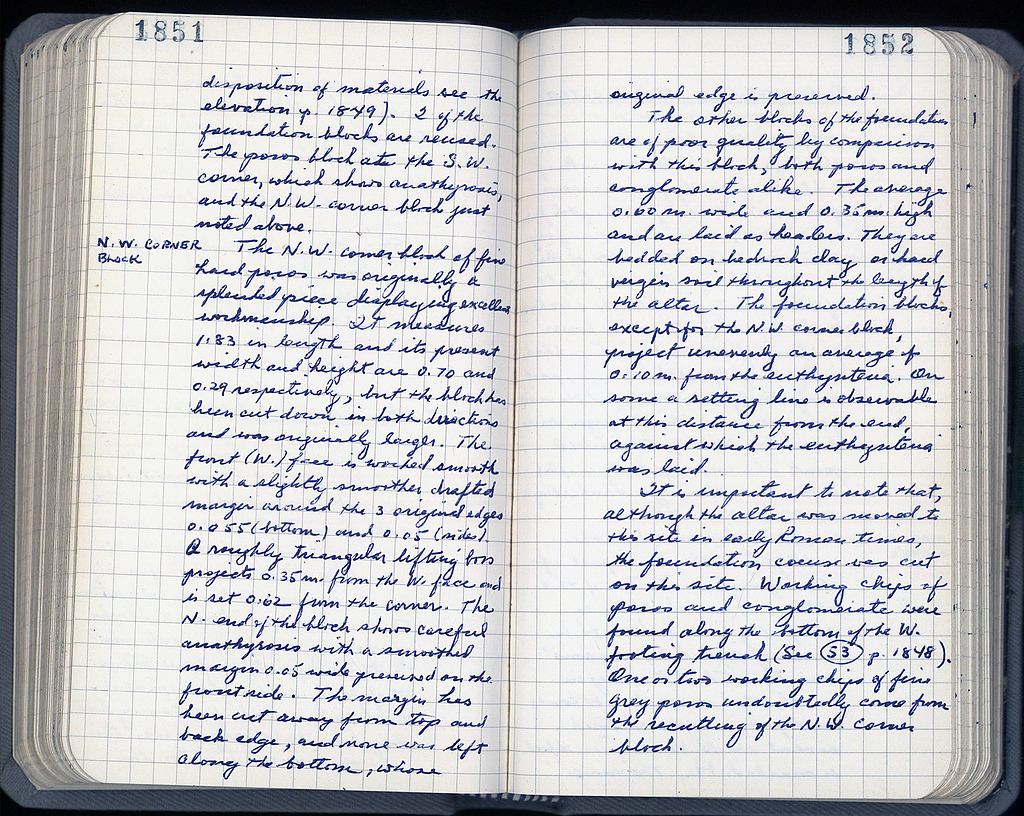 1851
disposition of materials see the
elevation p 1849). 2 of the
foundation blocks are reused.
The poros block at the S.W.
corner, which shows anathyrosis,
and the N.W. corner block just
noted above.
N.W. CORNER
BLOCK
The N.W. corner block of fine
hard poros was originally a
splendid piece displaying excellent
workmanship. It measures
1.83 in length and its present
width and height are 0.70 and
0.29 respectively, but the block has
been cut down in both directions
and was originally larger. The
front (W.) face is worked smooth
with a slightly smoother, drafted
margin around the 3 original edges
0.055 (bottom) and 0.05 (sides).
A roughly triangular lifting boss
projects 0.35 m. from the W. face and
is set 0.62 from the corner. The
N. end of the block shows careful
anathyrosis with a smoothed
margin 0.05 wide preserved on the
front side. The margin has
been cut away from top and
back edge, and none was left
along the bottom, whose
1852
original edge is preserved.
The other blocks of the foundation
are of poor quality by comparison
with this block, both poros and
conglomerate alike. The average
0.60 m. wide and 0.35 m. high
and are laid as headers. They are
bedded on bedrock clay or hard
virgin soil throughout the length of
the altar. The foundation blocks,
except for the N.W. corner block,
project unevenly an average of
0.10 m. from the euthynteria. On
some a setting line is observable
at this distance from the end,
against which the euthynteria
was laid.
It is important to note that,
although the altar was moved to
this site in early Roman times,
the foundation course was cut
on this site. Working chips of
poros and conglomerate were
found along the bottom of the W.
footing trench (See 53 p. 1848).
One or two working chips of fine
grey poros undoubtedly come from
the recutting of the N.W. corner
block.